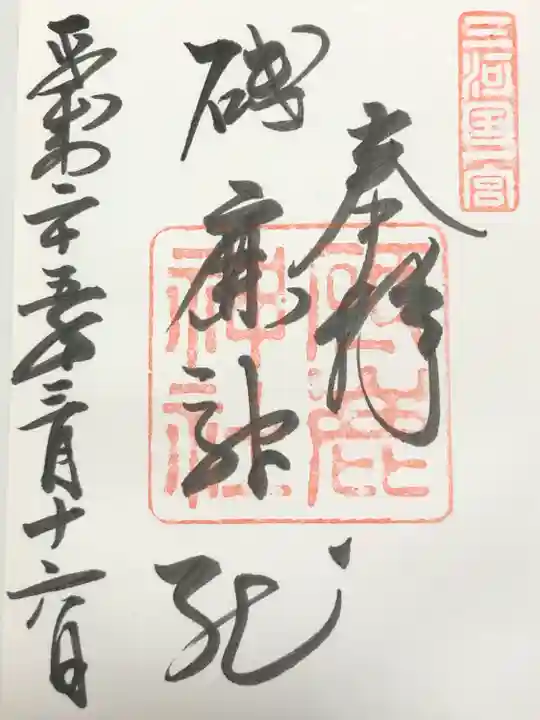 三河國一宮
奉拝
砥鹿神社
砥鹿神社
平成二十五年三月十六日